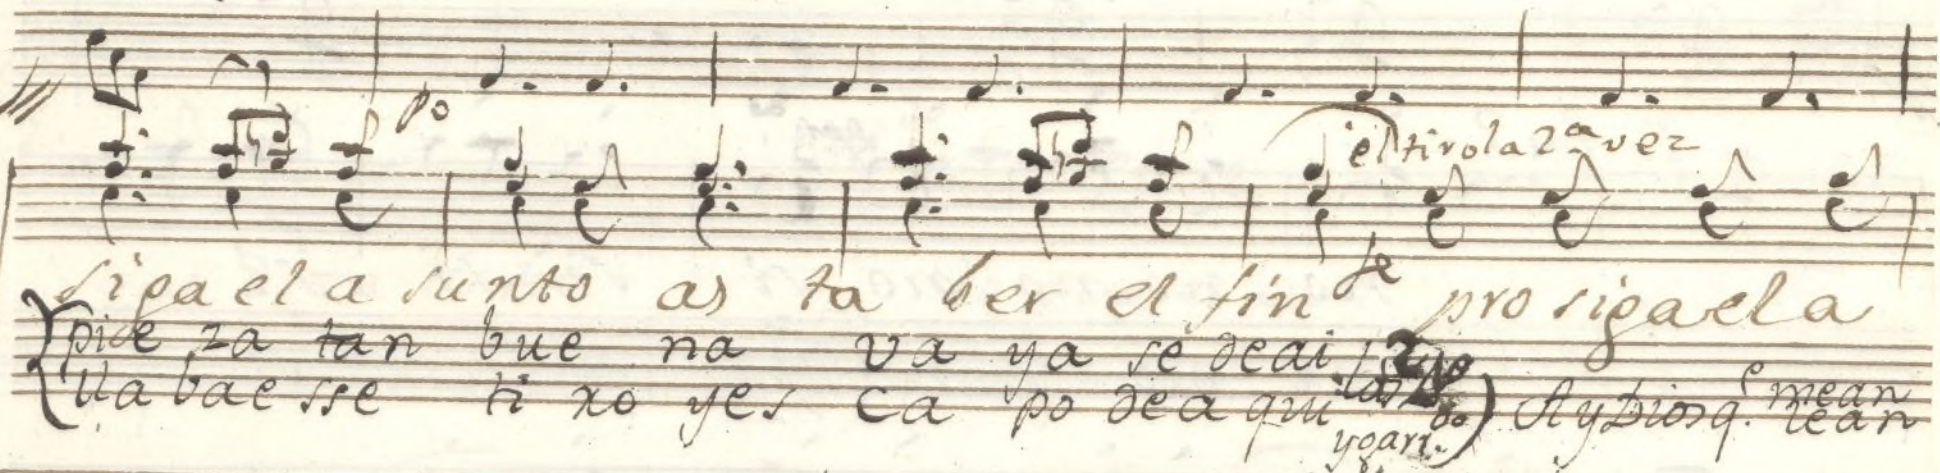 po
el tiro la 2ª vez
siga el a sunto as ta ber el fin se pro siga el a
pie za tan bue na va ya se de ai
lla ba e sse ti xo y es ca po de a qui Ay Dios q.e me an
le an